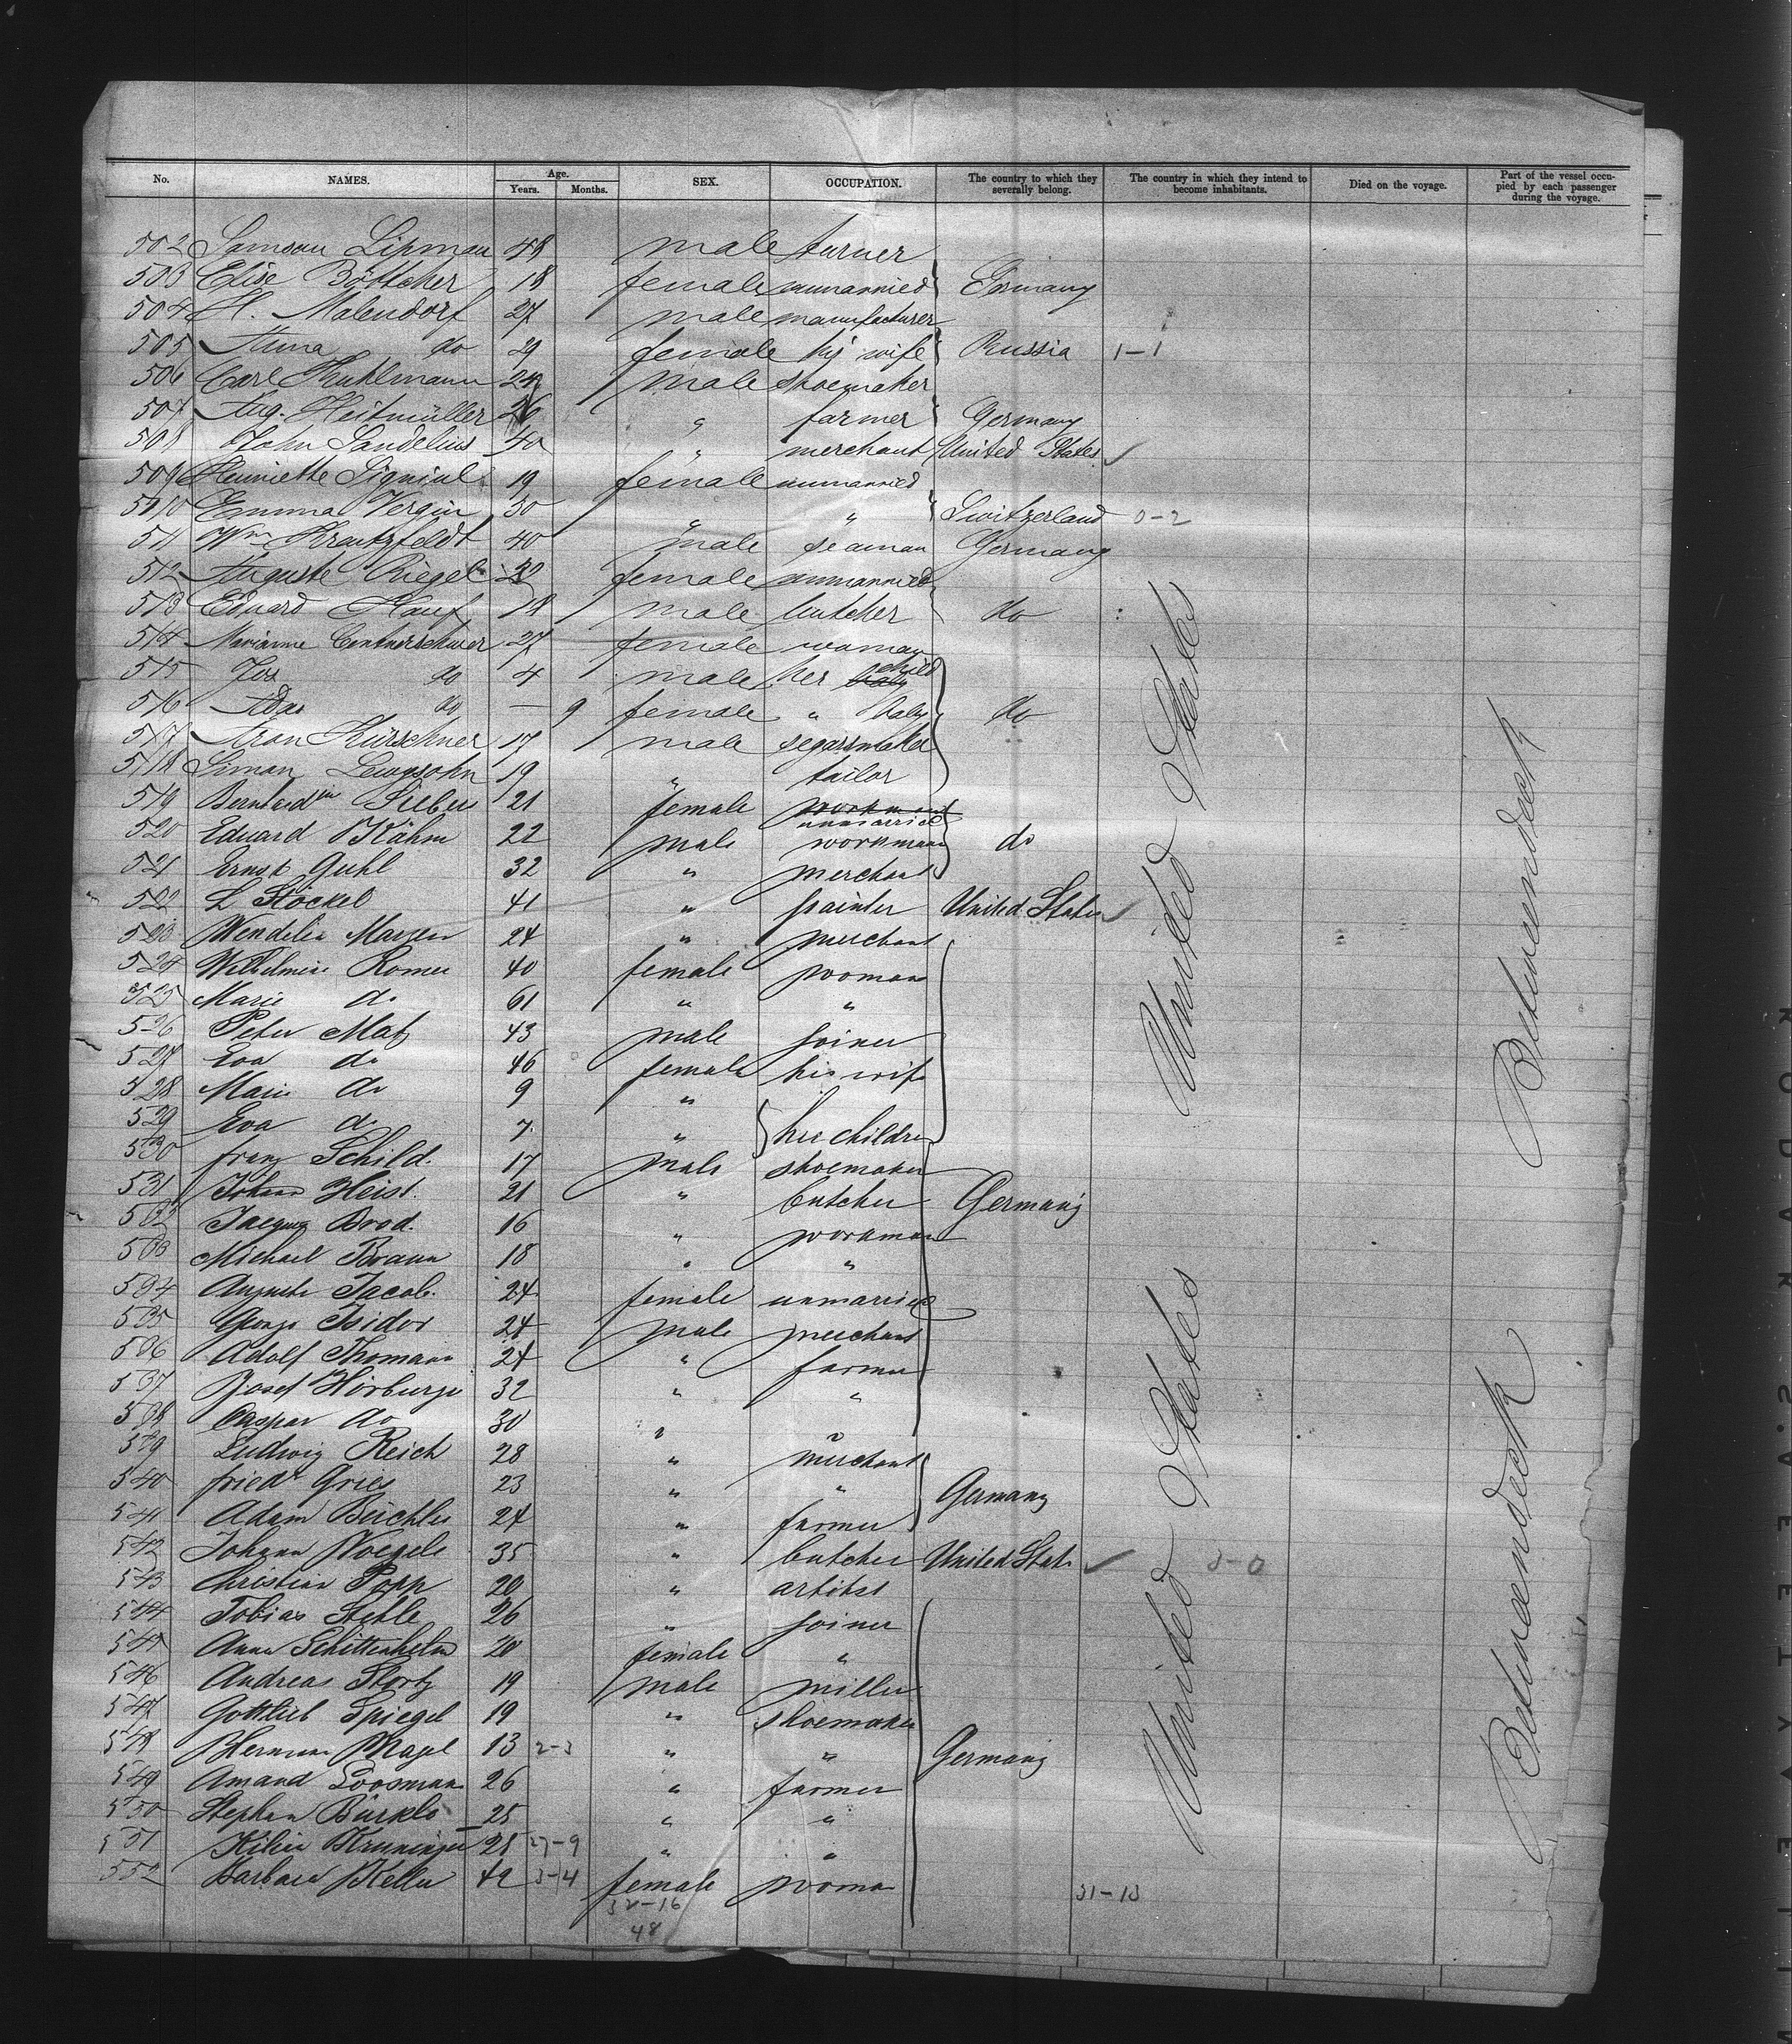 No. NAMES. Age. Years. Months. SEX. OCCUPATION. The country to which they severally belong. The country in which they intend to become inhabitants. Died on the voyage. Part of the vessel occupied by each passenger during the voyage.
502 Samson Lipman 48 male turner
503 Elise Böttcher 18 female unmarried Germany
504 H. Malendorf 27 male manufacturer
505 Anna do 29 female his wife Russia 1-1
506 Carl Kuhlmann 24 male shoemaker
507 Aug. Heitmüller 26 " farmer Germany
508 John Sandelius 40 " merchant United States ✓
509 Henriette 19 female unmarried
510 Emma Vergin 30 " " Switzerland 0-2
511 Wm Kreutzfeldt 40 male seaman Germany
512 Auguste Riegel female unmarried
513 Eduard Hauf 18 male butcher do
514 Marianne Centnerschwer 27 female woman
515 Jos do 4 male her child
516 Ada do — 9 female " baby do
517 Aron Kürschner 17 male segarsmaker
518 Simon Lewysohn 19 " tailor
519 21 female unmarried
520 Eduard Kähm 22 male workman do
521 Ernst Guhl 32 " merchant
522 L Stöckel 41 " painter United States ✓
523 Wendelin 24 " merchant
524 Wilhelmine Romer 40 female woman
525 Marie do 61 " "
526 Peter Matz 43 male joiner
527 Eva do 46 female his wife
528 Marie do 9 "
529 Eva do 7 " her children
530 Franz Schild. 17 male shoemaker
531 Johann Heist. 21 " butcher Germany
532 Brod. 16 " workman
533 Michael Braun 18 " "
534 Auguste Jacob. 24 female unmarried
535 George Isidor 24 male merchant
536 Adolf Thomann 24 " farmer
537 Josef Hörburger 32 " "
538 Caspar do 30 " "
539 Ludwig Reich 28 " merchant
540 Friedr Gries 23 " " Germany
541 Adam Büchler 24 " farmer
542 Johann Woegele 35 " butcher United Stat. ✓ 3-0
543 Christian Popp 20 " artist
544 Tobias Stehle 26 " joiner
545 Anna Schittenhelm 20 female "
546 Andreas Stortz 19 male miller
547 Gottlieb Spiegel 19 " shoemaker
548 Herman Nagel 13 2-3 " " Germany
549 Amand Loosmann 26 " farmer
550 Stephan Bürkle 25 " "
551 Kilian 28 27-9 " "
552 Barbara Keller 42 3-4 female woman
32-16 31-13
48
United States
Betweendeck
United States
Betweendeck